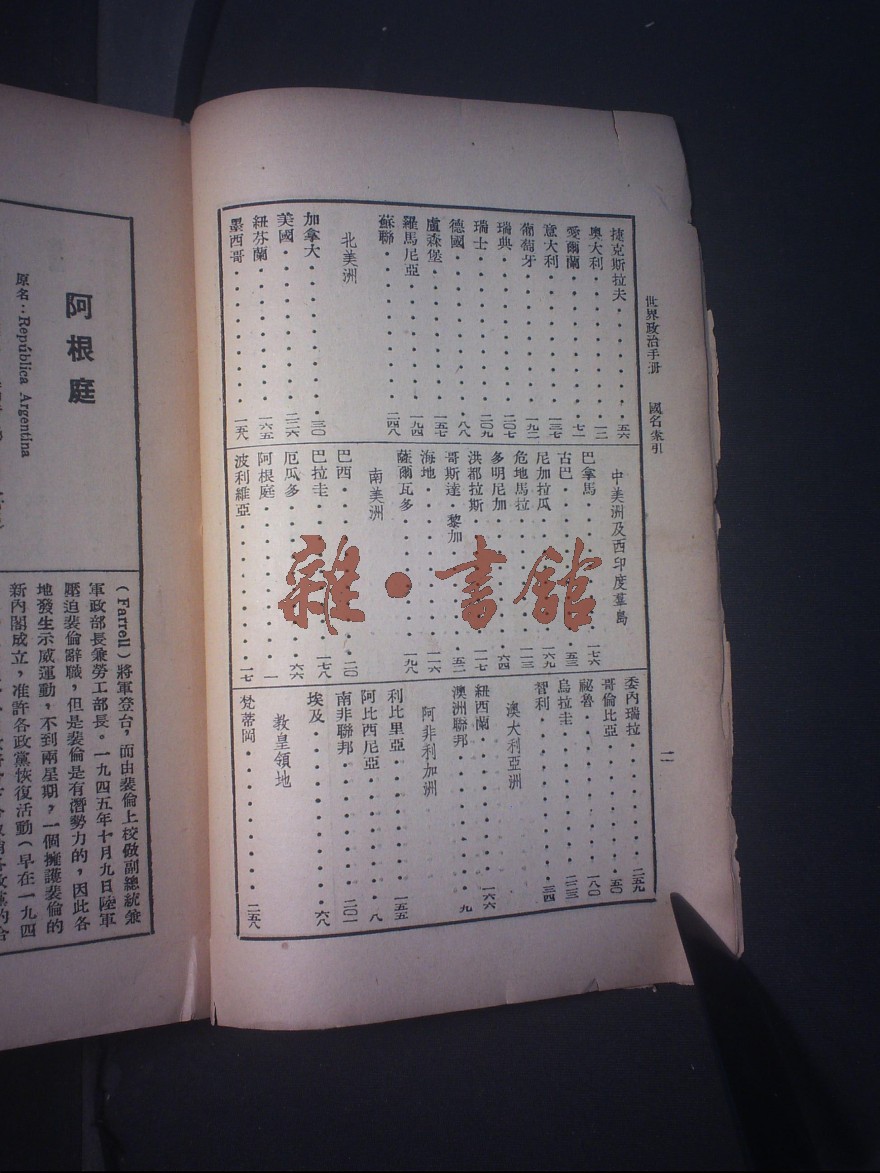 世界政治手册　國名索引
二
捷克斯拉夫・・・・・五六
奧大利・・・・・一二
愛爾蘭・・・・・七一
意大利・・・・・一三七
葡萄牙・・・・・一九二
瑞典・・・・・二〇七
瑞士・・・・・二〇九
德國・・・・・八八
盧森堡・・・・・一五七
羅馬尼亞・・・・・一九四
蘇聯・・・・・二四八
北美洲
加拿大・・・・・三〇
美國・・・・・二二六
紐芬蘭・・・・・一六五
墨西哥・・・・・一五八
中美洲及西印度羣島
巴拿馬・・・・・一七六
古巴・・・・・五三
尼加拉瓜・・・・・一六九
危地馬拉・・・・・一一三
多明尼加・・・・・六四
洪都拉斯・・・・・一一七
哥斯達・黎加・・・・・五二
海地・・・・・一一六
薩爾瓦多・・・・・一九八
南美洲
巴西・・・・・二〇
巴拉圭・・・・・一七八
厄瓜多・・・・・六六
阿根庭・・・・・一
波利維亞・・・・・一七
委內瑞拉・・・・・二五九
哥倫比亞・・・・・五〇
祕魯・・・・・一八〇
烏拉圭・・・・・二二三
智利・・・・・三四
澳大利亞洲
紐西蘭・・・・・一六六
澳洲聯邦・・・・・九
阿非利加洲
利比里亞・・・・・一五五
阿比西尼亞・・・・・八
南非聯邦・・・・・二〇一
埃及・・・・・六八
教皇領地
梵蒂岡・・・・・二五八
雜・書館
阿根庭
原名：República Argentina
（Farrell）將軍登台，而由裴倫上校做副總統兼
軍政部長兼勞工部長。一九四五年十月九日陸軍
壓迫裴倫辭職，但是裴倫是有潛勢力的，因此各
地發生示威運動，不到兩星期，一個擁護裴倫的
新內閣成立，准許各政黨恢復活動（早在一九四